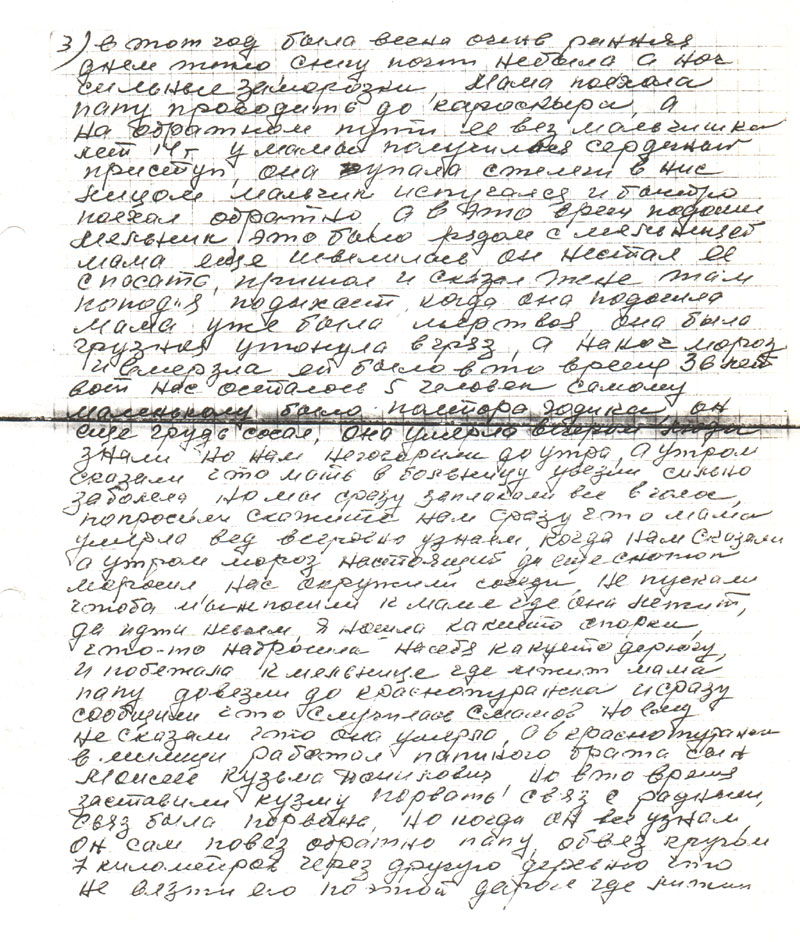 3) в тот год была весна очень ранняя
днем тепло снегу почти небыла а ноч
сильные заморозки, Мама поехала
папу проводить до а
на обратном пути ее вез мальчишка
лет 14г у мамы получился сердечный
приступ, она упала с телеги в низ
лицом мальчик испугался и быстро
поехал обратно а в это время подошол
мельник это было рядом с мельницей
мама еще шевелилась он нестал ее
спасать, пришол и сказал жене там
попадья подыхает, когда она подошла
мама уже была мертвая она была
грузная утонула в грязь, а наноч мороз
и вмерзла ей было в то время 36 лет
вот нас осталось 5 человек самому
маленькому было полтора годика, он
еще грудь сосал, она умерла вечером люди
знали но нам неговорили до утра, а утром
сказали что мать в больницу увезли сильно
заболела но мы сразу заплакали все в голос,
попросили скажите нам сразу что мама
умерла вед всеровно узнаем, когда нам сказали
а утром мороз настоящий да еще снежок
моросил нас окружили соседи, не пускали
чтобы мы непошли к маме где она лежит,
да идти невчем, я нашла какието опорки,
что-то набросила насебя какуюто дерюгу,
и побежала к мельнице где лежит мама
папу довезли до краснотуранска и сразу
сообщили что случилось с мамой но ему
не сказали что она умерла, а в краснотуранске
в милиции работал папиного брата сын
Моисеев Кузьма но в то время
заставили кузму порвать связ с родными,
связ была порвана, но когда он все узнал
он сам повез обратно папу, обвез кругом
7 километров через другую деревню что
не везти его по этой дороге где лежит